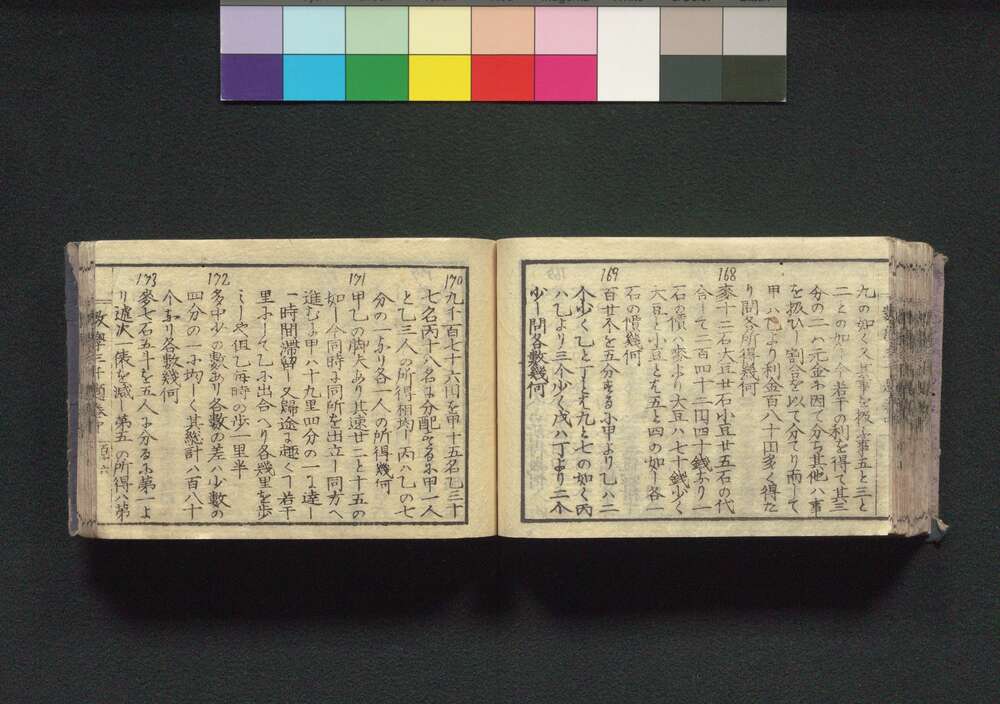 九の如く又其事を扱ふ事五と三と
二との如く今若干の利を得て其三
分の二ハ元金ホ因て分ち其他ハ事
を扱ひし割合を以て分てり而して
甲ハ乙より利金百八十田多く得た
り問各所得幾何
168
麥十二石大豆廿石小豆廿五石の代
合して二百四十二円四十銭なり一
石の價ハ麥より大豆ハ七十銭少く
大豆と小豆とハ五と四の如し各一
石の價幾何
169
百廿个を五分するふ甲より乙ハ二
个少く乙と丁とハ九と七の如く丙
ハ乙より三个少く戊ハ丁より二个
少し問各數幾何
170
九千百七十六円を甲十五名乙三十
七名丙十八名に分配するふ甲一人
と乙三人の所得相均し丙ハ乙の七
分の一なり各一人の所得幾何
171
甲乙の脚夫あり其速廿二と十五の
如し今同時に同所を出立し同方へ
進むに甲ハ十九里四分の一に達し
一時間滞留し又歸途に趣くて若干
里ふして乙ふ出合へり各幾里を歩
しや但乙毎時の歩一里半
172
多中少の數あり各數の差ハ少數の
四分の一ふ均しく其總計ハ百八十
个なり各數幾何
173
麥七石五斗を五人に分るふ第一よ
り遞次一俵を減し第五の所得ハ第
數學三千題卷中
六